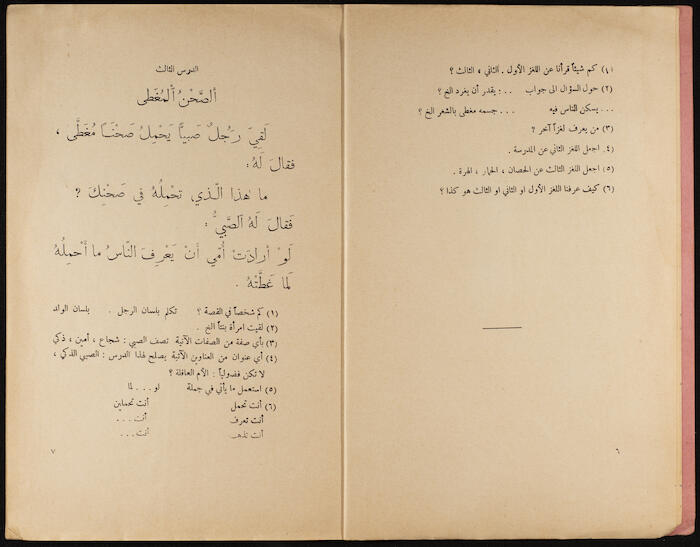 (١) كم شيئاً قرأنا عن اللغز الأول . الثاني ، الثالث ؟
(٢) حول السؤال الى جواب ... : يقدر أن يغرد الخ ؟
... يسكن الناس فيه ... جسمه مغطى بالشعر الخ ؟
(٣) من يعرف لغزاً آخر ؟
(٤) اجعل اللغز الثاني عن المدرسة .
(٥) اجعل اللغز الثالث عن الحصان ، الحمار ، الهرة .
(٦) كيف عرفنا اللغز الأول او الثاني او الثالث هو كذا ؟
٦
الدرس الثالث
اَلصَّحْنُ اُلْمُغَطَّى
لَقِيَ رَجُلٌ صَبِيًّا يَحْمِلُ صَحْنًا مُغَطًّى ،
فقالَ لَهُ :
ما هٰذا الَّذي تحْمِلُهُ في صَحْنِكَ ؟
فَقالَ لَهُ اَلصَّبيُّ :
لَوْ أرادَتْ أُمّي أنْ يَعْرِفَ النّاسُ ما أَحْمِلُهُ
لَما غَطَّتْهُ .
(١) كم شخصاً في القصة ؟ تكلم بلسان الرجل . بلسان الولد
(٢) لقيت امرأة بنتاً الخ .
(٣) بأي صفة من الصفات الآتية تصف الصبي : شجاع ، أمين ، ذكي
(٤) أي عنوان من العناوين الآتية يصلح لهذا الدرس : الصبي الذكي ،
لا تكن فضولياً : الأم العاقلة ؟
(٥) استعمل ما يأتي في جملة لو ... لما
(٦) أنت تحمل أنت تحملين
أنت تعرف أنت ...
أنت تذهب أنت ...
٧